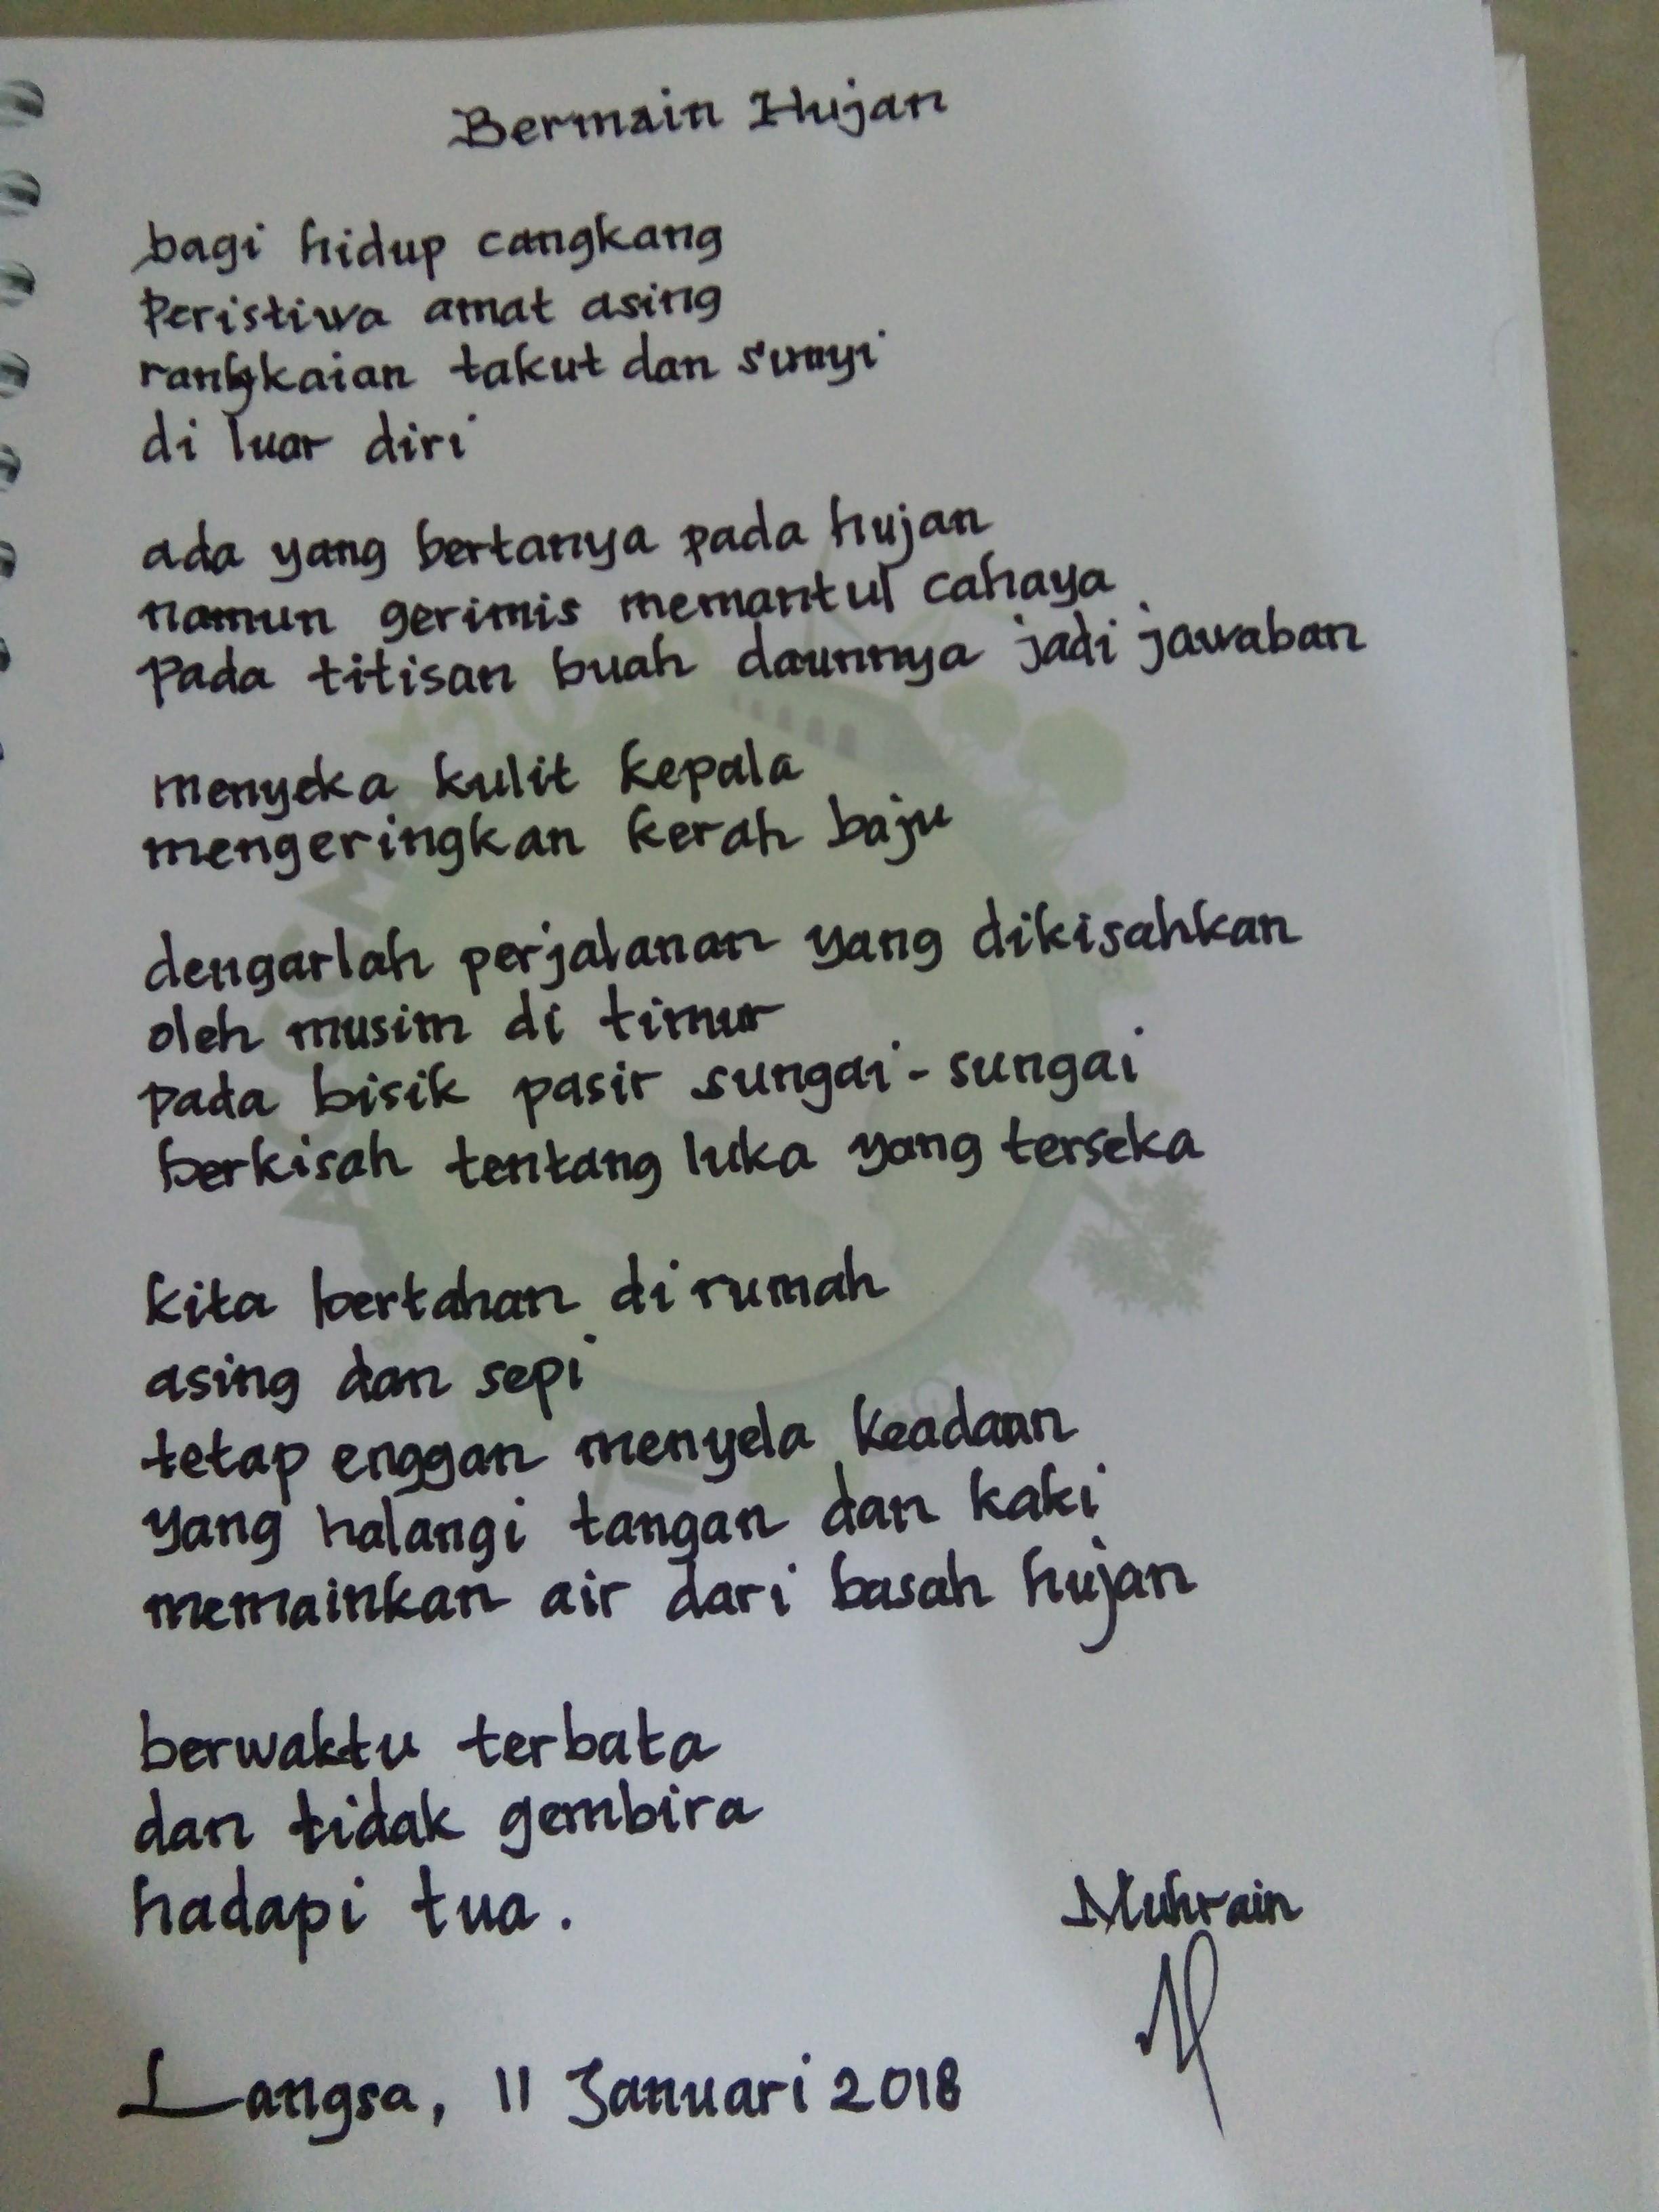 Bermain Hujan
bagi hidup cangkang
Peristiwa amat asing
rangkaian takut dan sunyi
di luar diri
ada yang bertanya pada hujan
namun gerimis memantul cahaya
Pada titisan buah daunnya jadi jawaban
menyeka kulit kepala
mengeringkan kerah baju
dengarlah perjalanan yang dikisahkan
oleh musim di timur
pada bisik pasir sungai-sungai
berkisah tentang luka yang terseka
kita bertahan di rumah
asing dan sepi
tetap enggan menyela keadaan
yang halangi tangan dan kaki
memainkan air dari basah hujan
berwaktu terbata
dan tidak gembira
hadapi tua.
Muhrain
Langsa, 11 Januari 2018